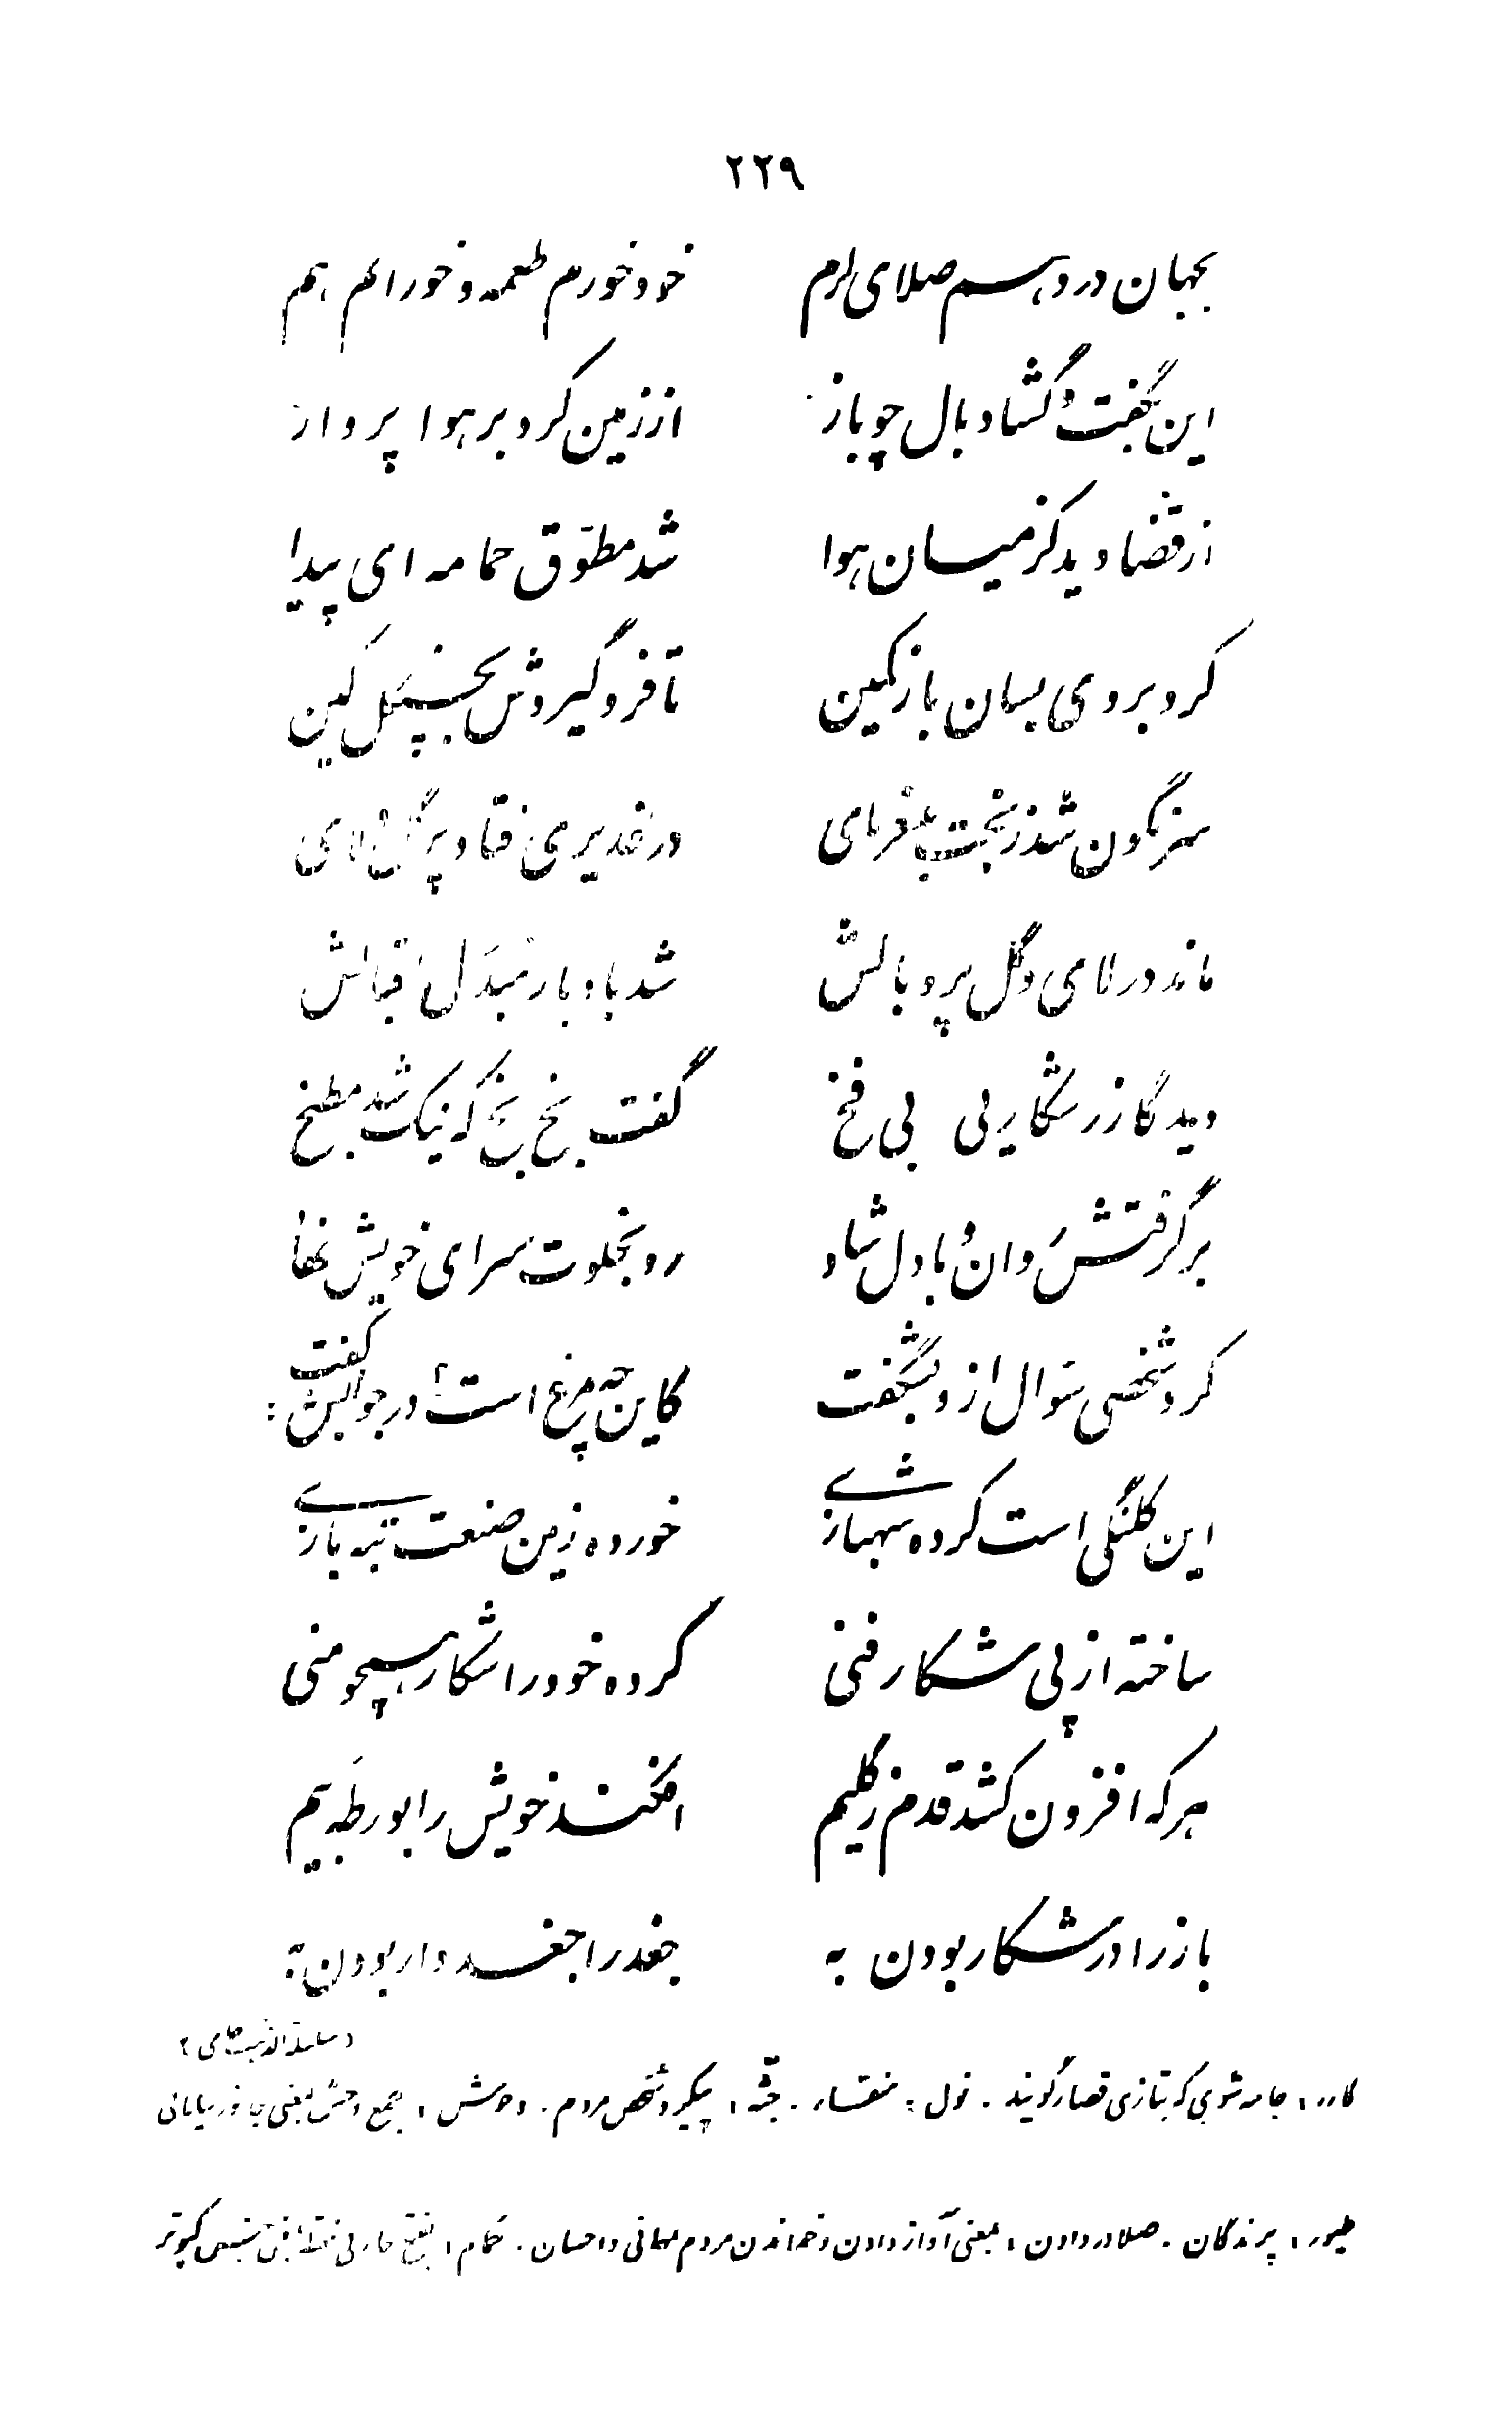 ۲۲۹
بجهان در دهم صلای کرم خود خورم طعمه و خورانم هم
این بگفت و گشاد بال چو باز از زمین کرد بر هوا پرواز
از قضا دید کز میان هوا شد مطوّق حمامه ای پیدا
کرد بروی بسان باز کمین تا فرو گیردش بچنگل کین
سرنگون شد ز بخت بد فرمای در غدیری فتاد پر گل و لای
ماند در لای و گل پر و بالش شد بادبار مبدَل اقبالش
دید گازر شکاریی بی فخ گفت بخ بخ که نیک شد مطبخ
برگرفتش روان و با دل شاد رو بخلوت سرای خویش نهاد
کرد شخصی سؤال ازو بشگفت کاین چه مرغ است؟ در جوابش گفت:
این کلنگی است کرده شهبازی خورده زین صنعت تبه بازی
ساخته از پی شکار فنی کرده خود را شکار همچو منی
هرکه افزون کشد قدم ز گلیم افکند خویش را بورطهٔ بیم
باز را در شکار بودن به جغد را جغد وار بودن به
(سلسلة الذهب جامی)
گازر: جامه شوی که بتازی قصار گویند. نول: منقار. جثّه: پیکر و شخص مردم. وحوش: جمع وحش بمعنی جانور بیابانی
طیور: پرندگان. صلا در دادن: بمعنی آواز دادن و خواندن مردم بمهمانی و احسان. حَمام: بفتح حاء بی نقطه جنس کبوتر